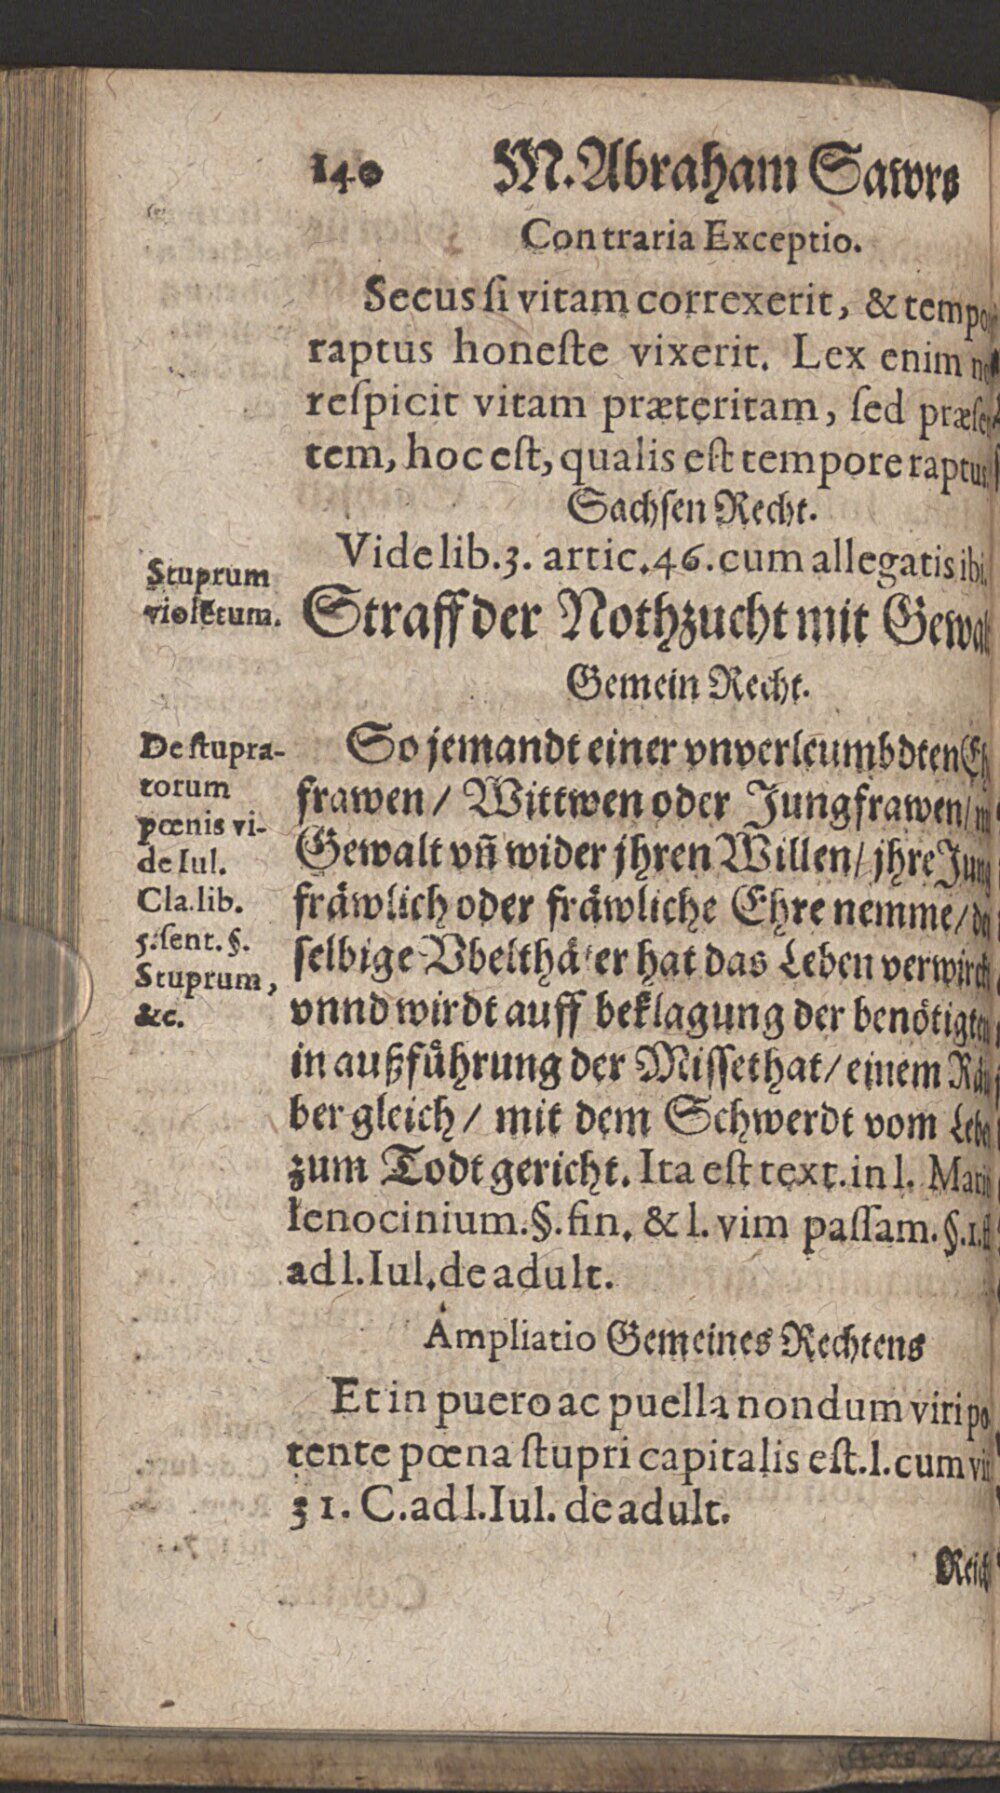 140 M. Abraham Sawrs
Contraria Exceptio.
Secus ſi vitam correxerit, & tempo
raptus honeſte vixerit. Lex enim
reſpicit vitam præteritam, ſed præſe
tem, hoc eſt, qualis eſt tempore raptus
Sachſen Recht.
Vide lib.3. artic.46. cum allegatis ibi.
Stuprum
violētum.
Straff der Nothzucht mit Gewal
Gemein Recht.
De ſtupra-
torum
pœnis vi-
de Iul.
Cla. lib.
5. ſent. §.
Stuprum,
&c.
So jemandt einer vnverleumbdten Eh
frawen / Wittwen oder Jungfrawen /
Gewalt vñ wider jhren Willen / jhre Jung
fräwlich oder fräwliche Ehre nemme /
ſelbige Vbelthäter hat das Leben verwirckt
vnnd wirdt auff beklagung der benötigten
in außführung der Miſſethat / einem Räu
ber gleich / mit dem Schwerdt vom Lebe
zum Todt gericht. Ita eſt text. in l. Mari
lenocinium. §. fin. & l. vim paſſam. §.1. ff
ad l. Iul. de adult.
Ampliatio Gemeines Rechtens
Et in puero ac puella nondum viri po
tente pœna ſtupri capitalis eſt. l. cum vi
31. C. ad l. Iul. de adult.
Reich